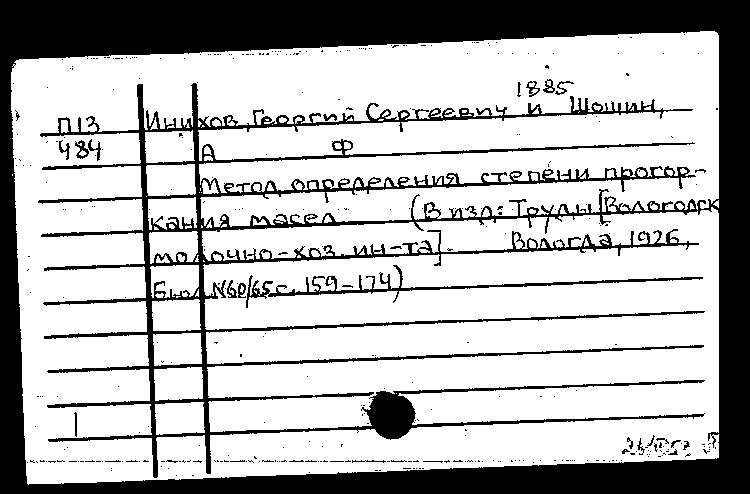 1885
П13 Инихов, Георгий Сергеевич и Шошин,
484 А Ф
Метод определения степени прогор-
кания масел. (В изд: Труды [Вологодск
молочно-хоз. ин-та]. Вологда, 1926,
Бюл. №60/65 с. 159-174)
1